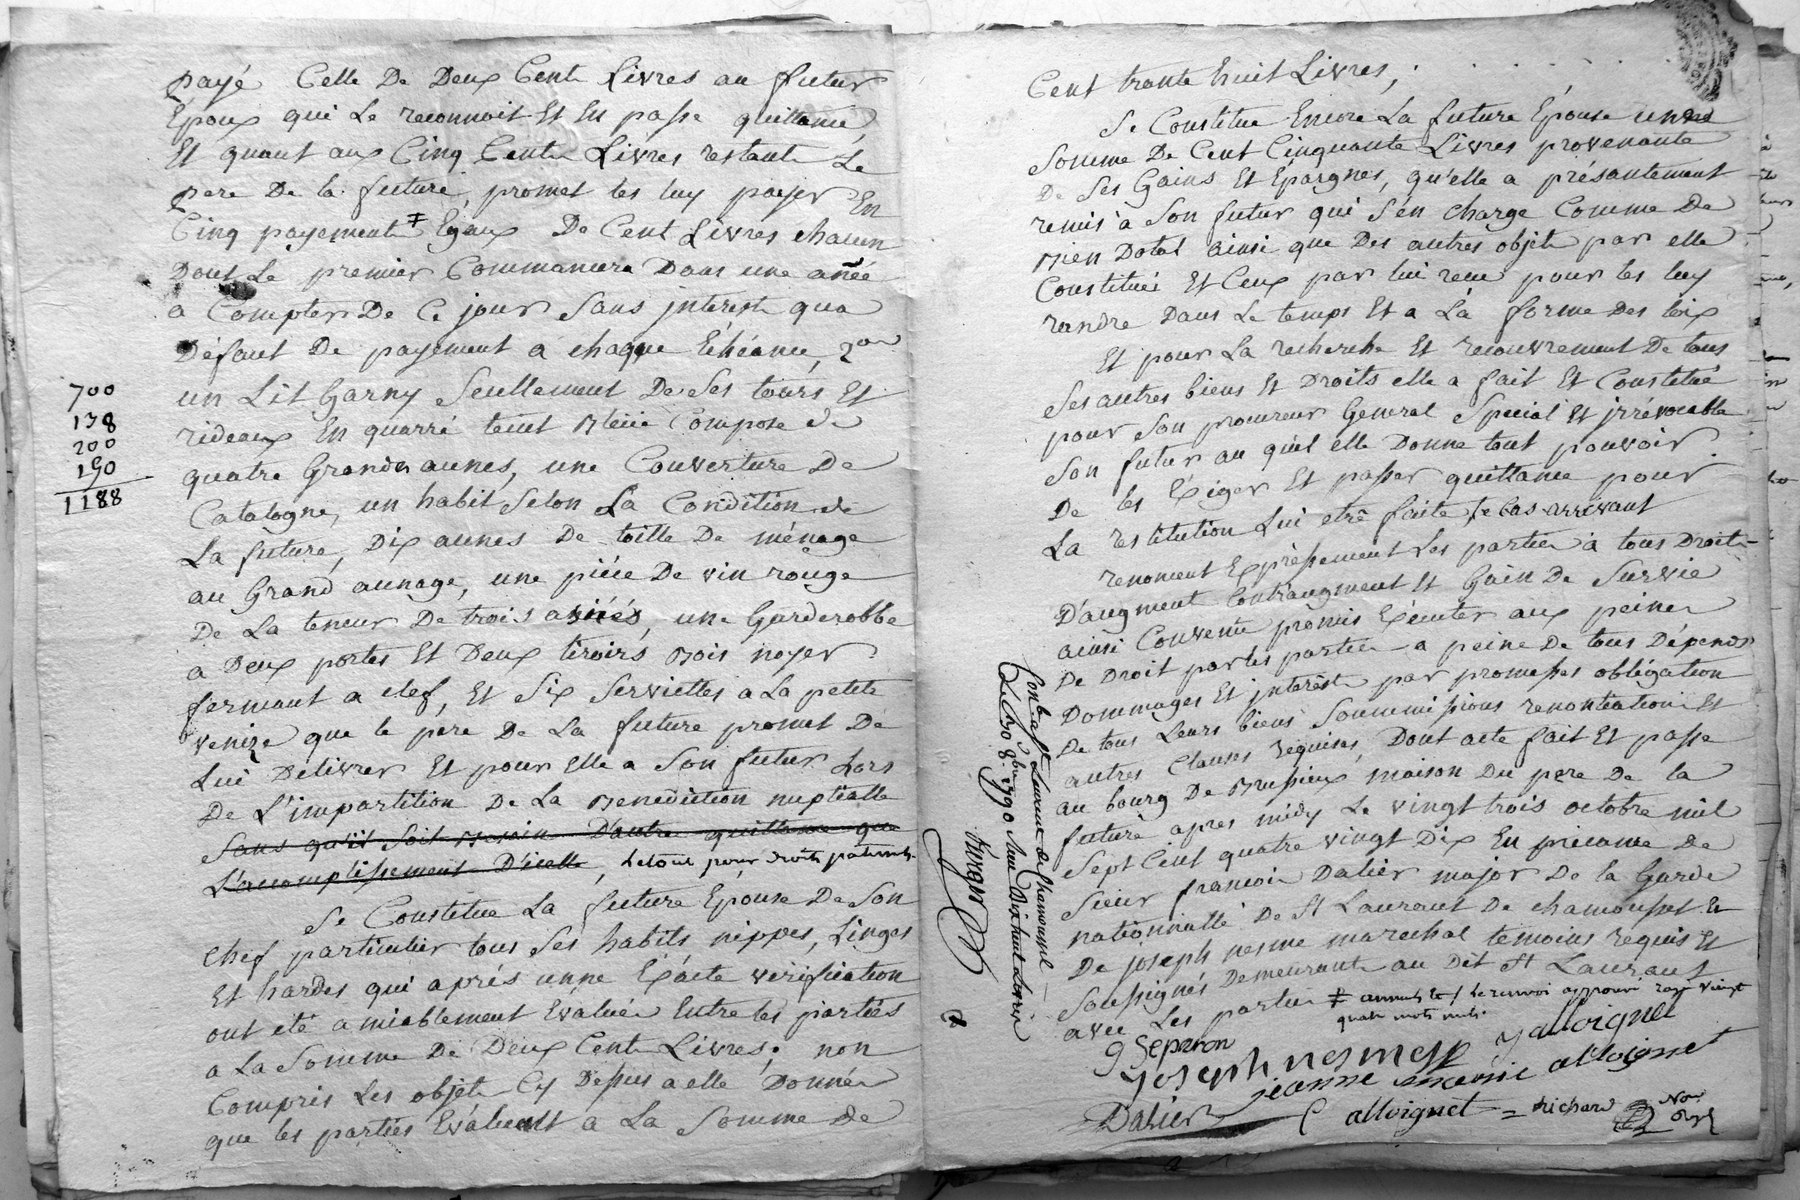 payé Celle De Deux Cent Livres au futur
Epoux qui Le reconnoit Et En passe quittance,
Et quant aux Cinq Cents Livres restants Le
pere De la future, promet les luy payer En
Cinq payements ‡ Egaux De Cent Livres chacun
Dont Le premier Commancera Dans une année
a Compter De Ce jour Sans jnterest qua
Défaut De payement a chaque Echéance, 2°
un Lit Garny Seullement De Ses tours Et
rideaux En quarré teint Bleüe Composé de
quatre Grandes aunes, une Couverture De
Catalogne, un habit Selon La Condition de
La future, Dix aunes De toille De ménage
au Grand aunage, une piéce De vin rouge
De La teneur De trois anées, une Garderobbe
a Deux portes Et Deux tiroirs Bois noyer
fermant a clef, Et Six Serviettes a La petite
venize que le pere De La future promet De
Lui Délivrer Et pour Elle a Son futur Lors
De L'impartition De La Benediction nuptialle
Sans qu'il Soit Besoin D'autre quittance que
L'acomplissement D'icelle, Le tout pour droits paternels.
Se Constitue La future Epouse De Son
Chef particulier tous Ses habits nippes, Linges
Et hardes qui aprés unne Exacte vérification
ont eté amiablement Evalués Entre les parties
a La Somme De Deux Cents Livres; non
Compris Les objets Cy Dessus a elle Donnés
que les parties Evaluent a La Somme De
700
138
200
150
1188
Cent trante huit Livres,
Se Constitue Encore La future Epouse une
Somme De Cent Cinquante Livres provenante
De Ses Gains Et Epargnes, qu'elle a présantement
remis a Son futur qui S'en charge Comme De
Bien Dotal ainsi que Des autres objets par elle
Constitués Et Ceux par lui reçu pour les luy
randre Dans Le temps Et a La forme Des loix
Et pour La recherche Et recouvrement De tous
Ses autres biens Et Droits elle a fait Et Constitué
pour Son procureur General Special Et jrrévocable
Son futur au quel elle Donne tout pouvoir
De les Exiger Et passer quittance pour
La restitution Lui etre faite le cas arrivant
renoncent Expressement Les parties à tous Droits
D'augment Contraugment Et Gain De Survie
ainsi Convenu promis Executer aux peines
De Droit par les parties a peine De tous Dépends
Dommages Et jnterêts par promesses obligation
De tous Leurs biens Soummissions renontiations Et
autres Clauses requises, Dont acte fait Et passe
au bourg De Brussieux maison Du pere De la
future apres midy Le vingt trois octobre mil
Sept Cent quatre vingt Dix En présance De
Sieur francois Dalier major De la Garde
nationnalle De St Laurant De chamousset Et
De joseph nesme marechal temoins requis Et
Soussignés Demeurants au Dit St Laurant
avec Les parties ‡ annuels / Le renvoi approuvé rayé vingt
quatre mots nuls.
g Separon
j alloignet
joseph nesme
jeanne alloignet
Dalier
C alloignet
Richard
Nore
Conle a St Laurent de Chamousset